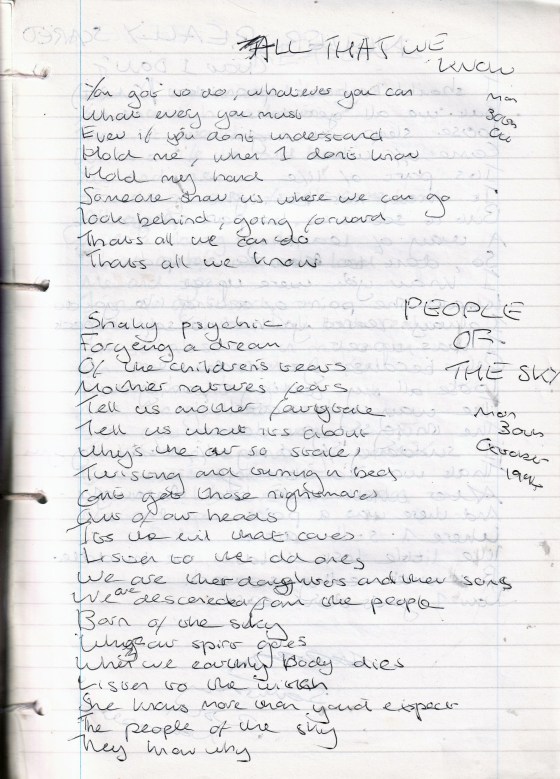 ALL THAT WE
KNOW
You got to do, whatever you can
What every you must
Even if you dont understand
Hold me, when I dont know
Hold my hand
Someone show us where we can go
look behind, going forward
Thats all we can do
Thats all we know
Mon
30th
Oct
PEOPLE
OF
THE SKY
Mon
30th
October
1994
Shaky psychic
Forgeing a dream
Of the children's tears
Mother natures fears
Tell us another fairytale
Tell us what its about
Why's the air so stale,
Twisting and turning in bed
Cant get those nightmares
Out of our heads
Its the evil that
Listen to the old ones
We are their daughters and their sons
We are descended from the people
Born of the sky
our spirit goes
When we earthly body dies
Listen to the
She knows more than you'd expect
The people of the sky
They know why